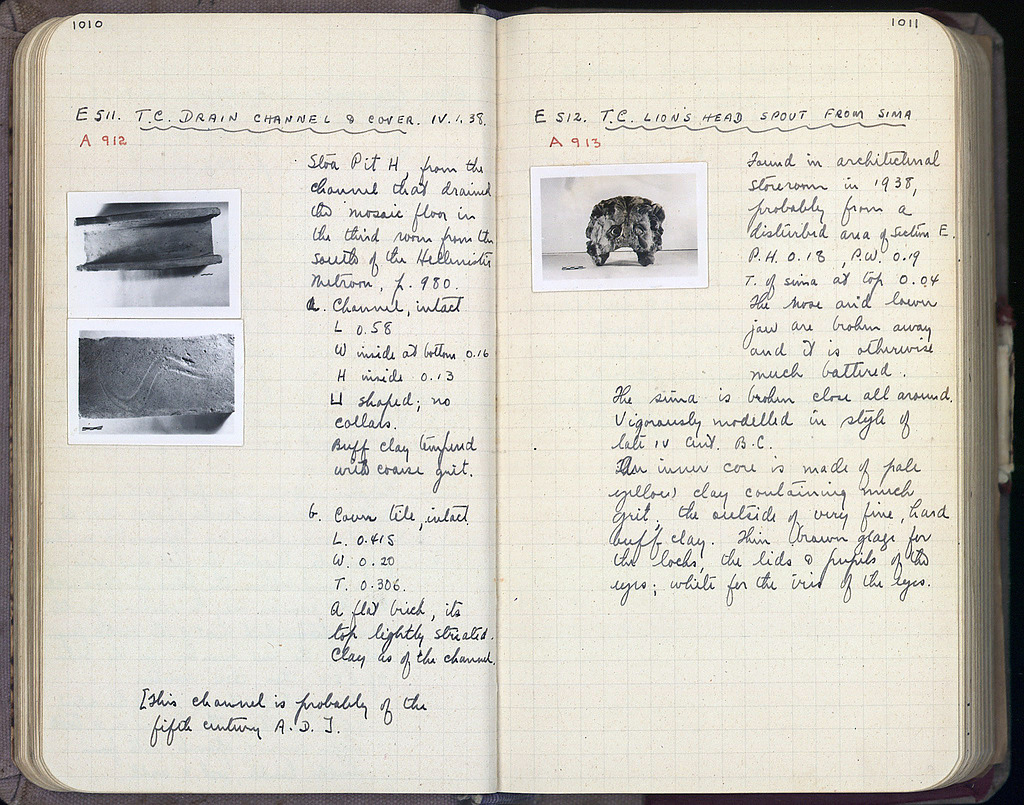 1010
E 511. T.C. DRAIN CHANNEL & COVER. IV.1.38.
A 912
Stoa Pit H, from the
channel that drained
the mosaic floor in
the third room from the
south of the Hellenistic
Metroon, p. 980.
a. Channel, intact
L 0.58
W inside at bottom 0.16
H inside 0.13
⊔ shaped; no
collars.
Buff clay tempered
with coarse grit.
b. Cover tile, intact
L. 0.415
W. 0.20
T. 0.306.
A flat brick, its
top lightly striated.
Clay as of the channel.
[This channel is probably of the
fifth century A.D.].
1011
E 512. T.C. LION'S HEAD SPOUT FROM SIMA
A 913
Found in architectural
storeroom in 1938,
probably from a
disturbed area of Section E.
P.H. 0.18, P.W. 0.19
T. of sima at top 0.04
The nose and lower
jaw are broken away
and it is otherwise
much battered.
The sima is broken close all around.
Vigorously modelled in style of
late IV cent. B.C.
The inner core is made of pale
yellow clay containing much
grit, the outside of very fine, hard
buff clay. Thin brown glaze for
the locks, the lids & pupils of the
eyes; white for the iris of the eyes.